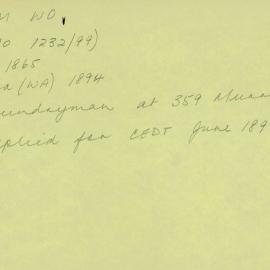 M WO
1232/99)
1865
(WA) 1894
undryman at 359 Murra
plied for CEDT June 189